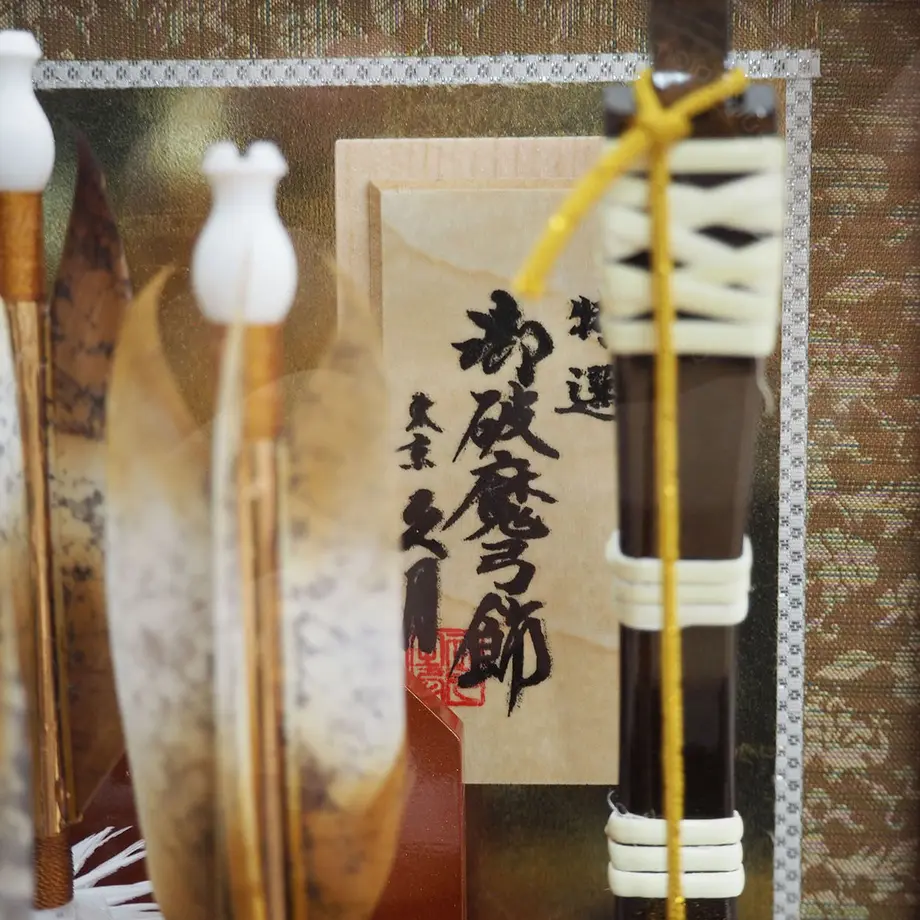 特選
御破魔弓飾
東京
久月